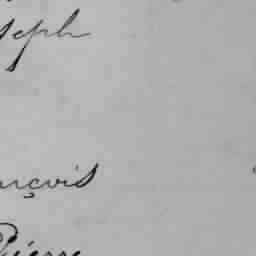 seph
nçois
Pierre